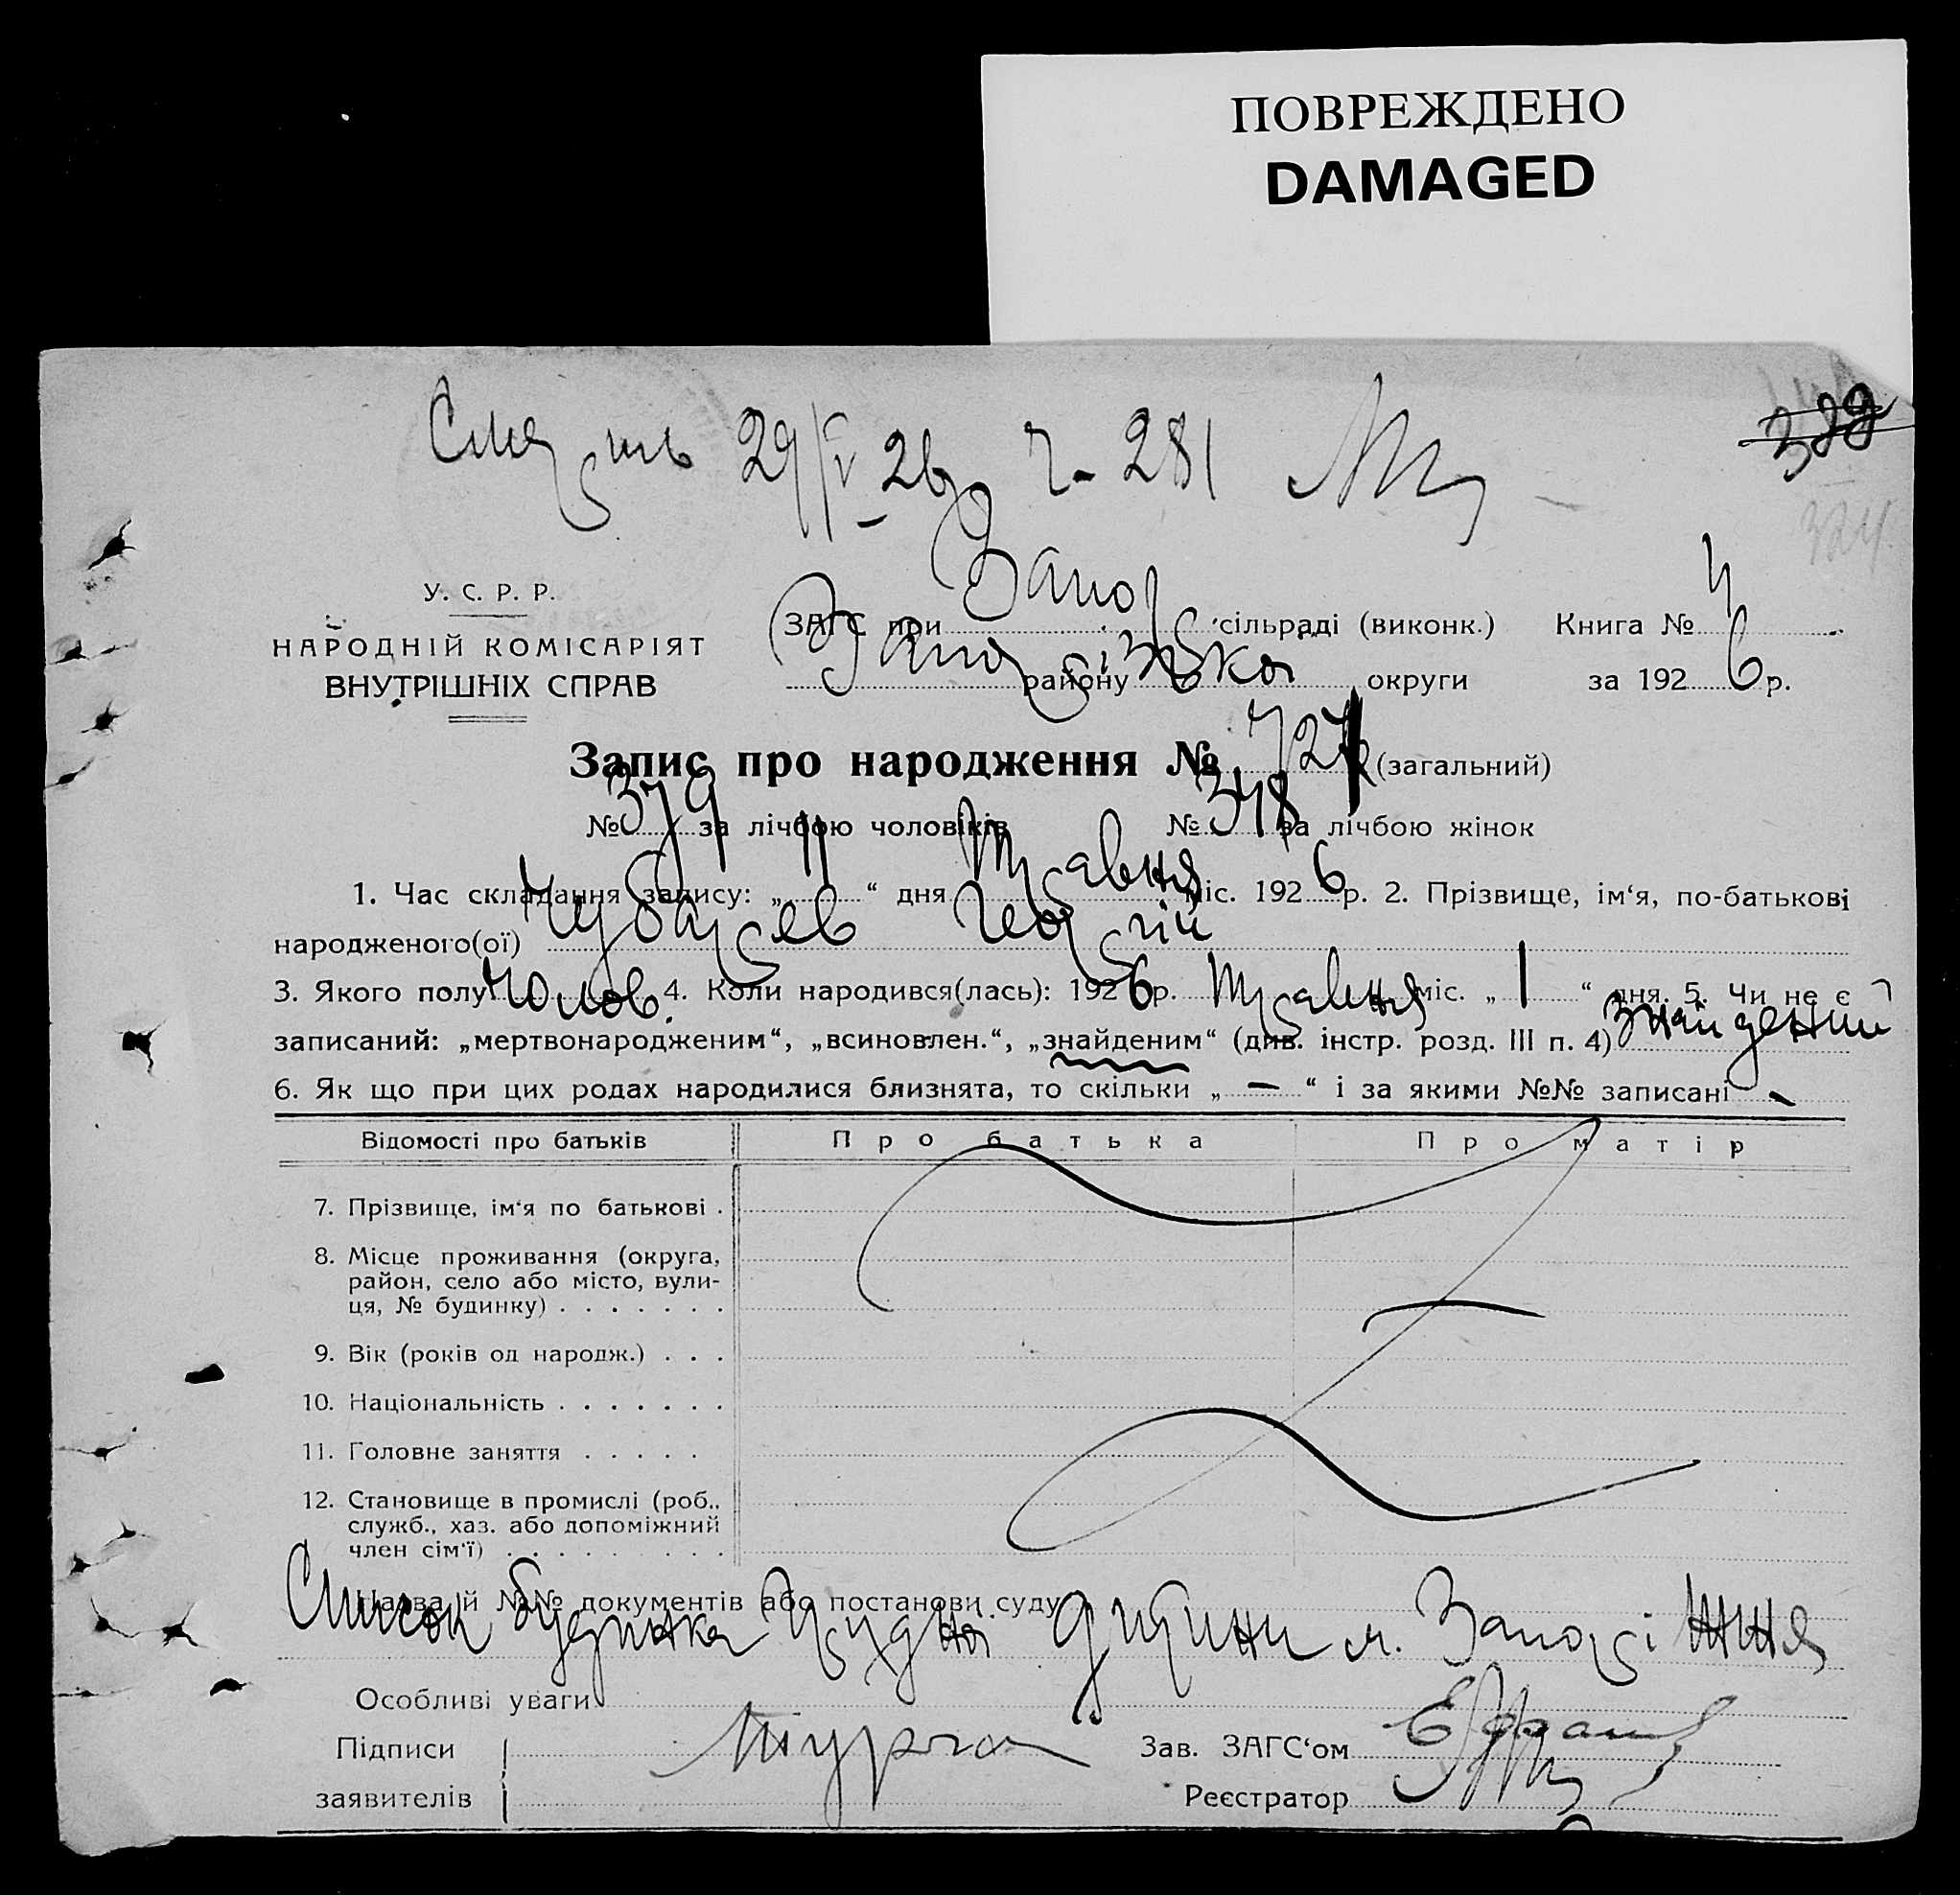 ПОВРЕЖДЕНО
DAMAGED
388
Смерть 29/V-26р ч-281
324
У. С. Р. Р.
НАРОДНІЙ КОМІСАРІЯТ
ВНУТРІШНІХ СПРАВ
ЗАГС при Запор сільраді (виконк.) Книга № 4
району округи за 1926 р.
Запис про народження № 727 (загальний)
№ 379 за лічбою чоловіків № 348 за лічбою жінок
1. Час складання запису: „11“ дня Травня міс. 1926 р. 2. Прізвище, ім‘я, по-батькові
народженого(ої) Чубарєв Георгій
3. Якого полу Чолов. 4. Коли народився(лась): 1926 р. Травня міс. „1“ дня. 5. Чи не є
записаний: „мертвонародженим“, „всиновлен.“, „знайденим“ (див. інстр. розд. III п. 4) знайдений
6. Як що при цих родах народилися близнята, то скільки „—“ і за якими №№ записані —
Відомості про батьків Про батька Про матір
7. Прізвище, ім‘я по батькові .
8. Місце проживання (округа,
район, село або місто, вули-
ця, № будинку) . . . . . . .
9. Вік (років од народж.) . . .
10. Національність . . . . . . .
11. Головне заняття . . . . .
12. Становище в промислі (роб.,
служб., хаз. або допоміжний
член сім‘ї) . . . . . . . . .
Назва й №№ документів або постанови суду
Список будинка Грудної дитини м. Запоріжжя
Особливі уваги
Підписи Зав. ЗАГС‘ом
заявителів Реєстратор